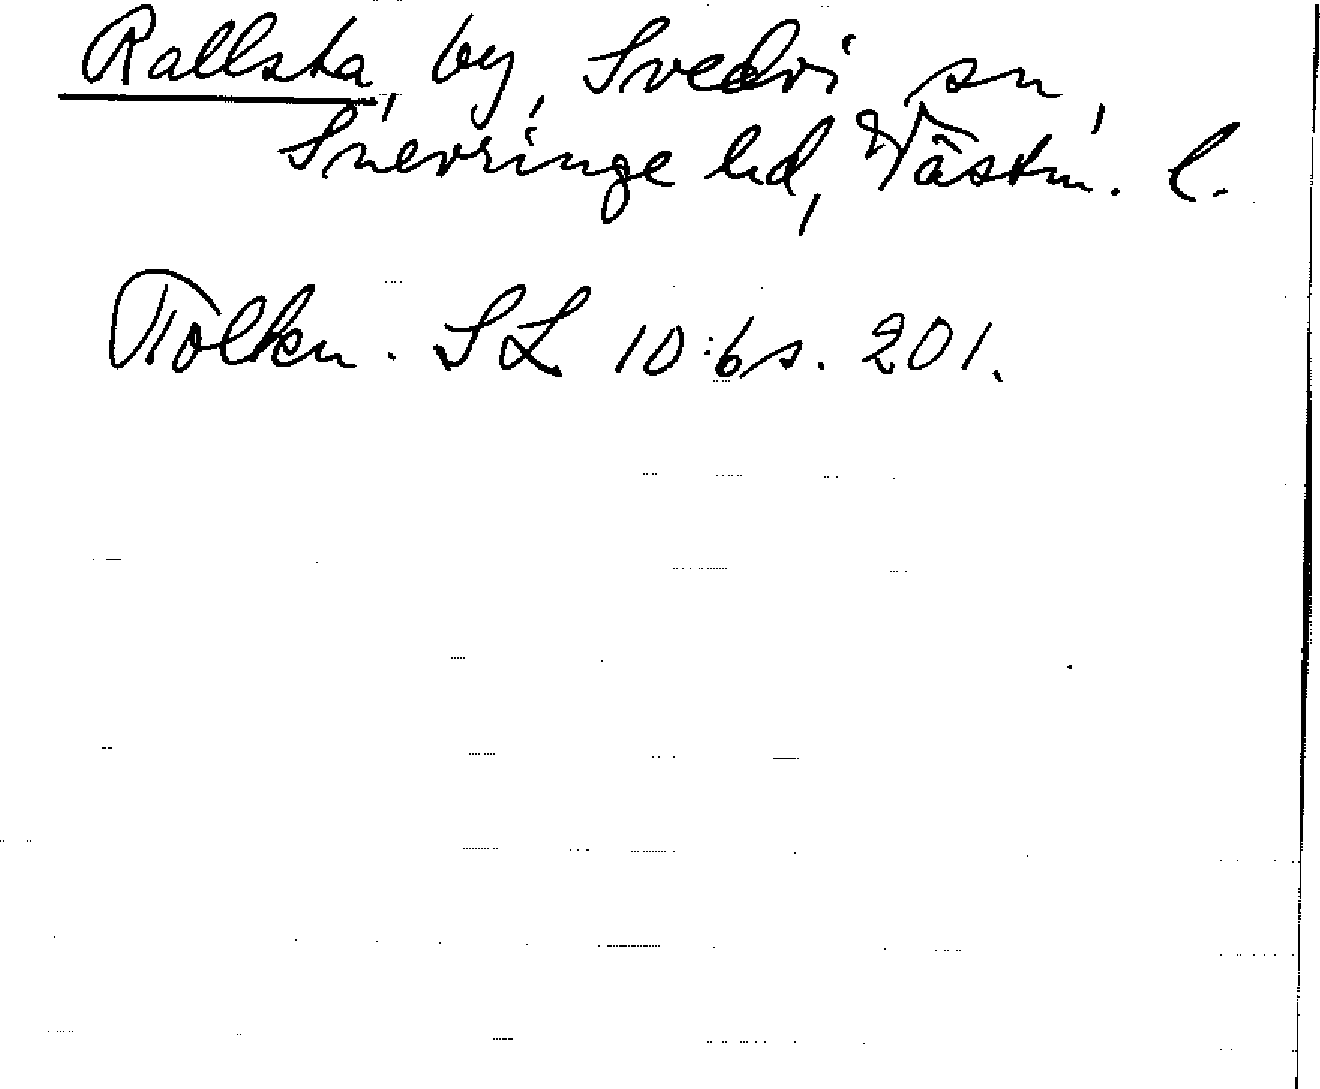 Rallsta, by, Svedvi sn,
Snevringe hd, Västm. l.
Tolkn. SL 10:6 s. 201.